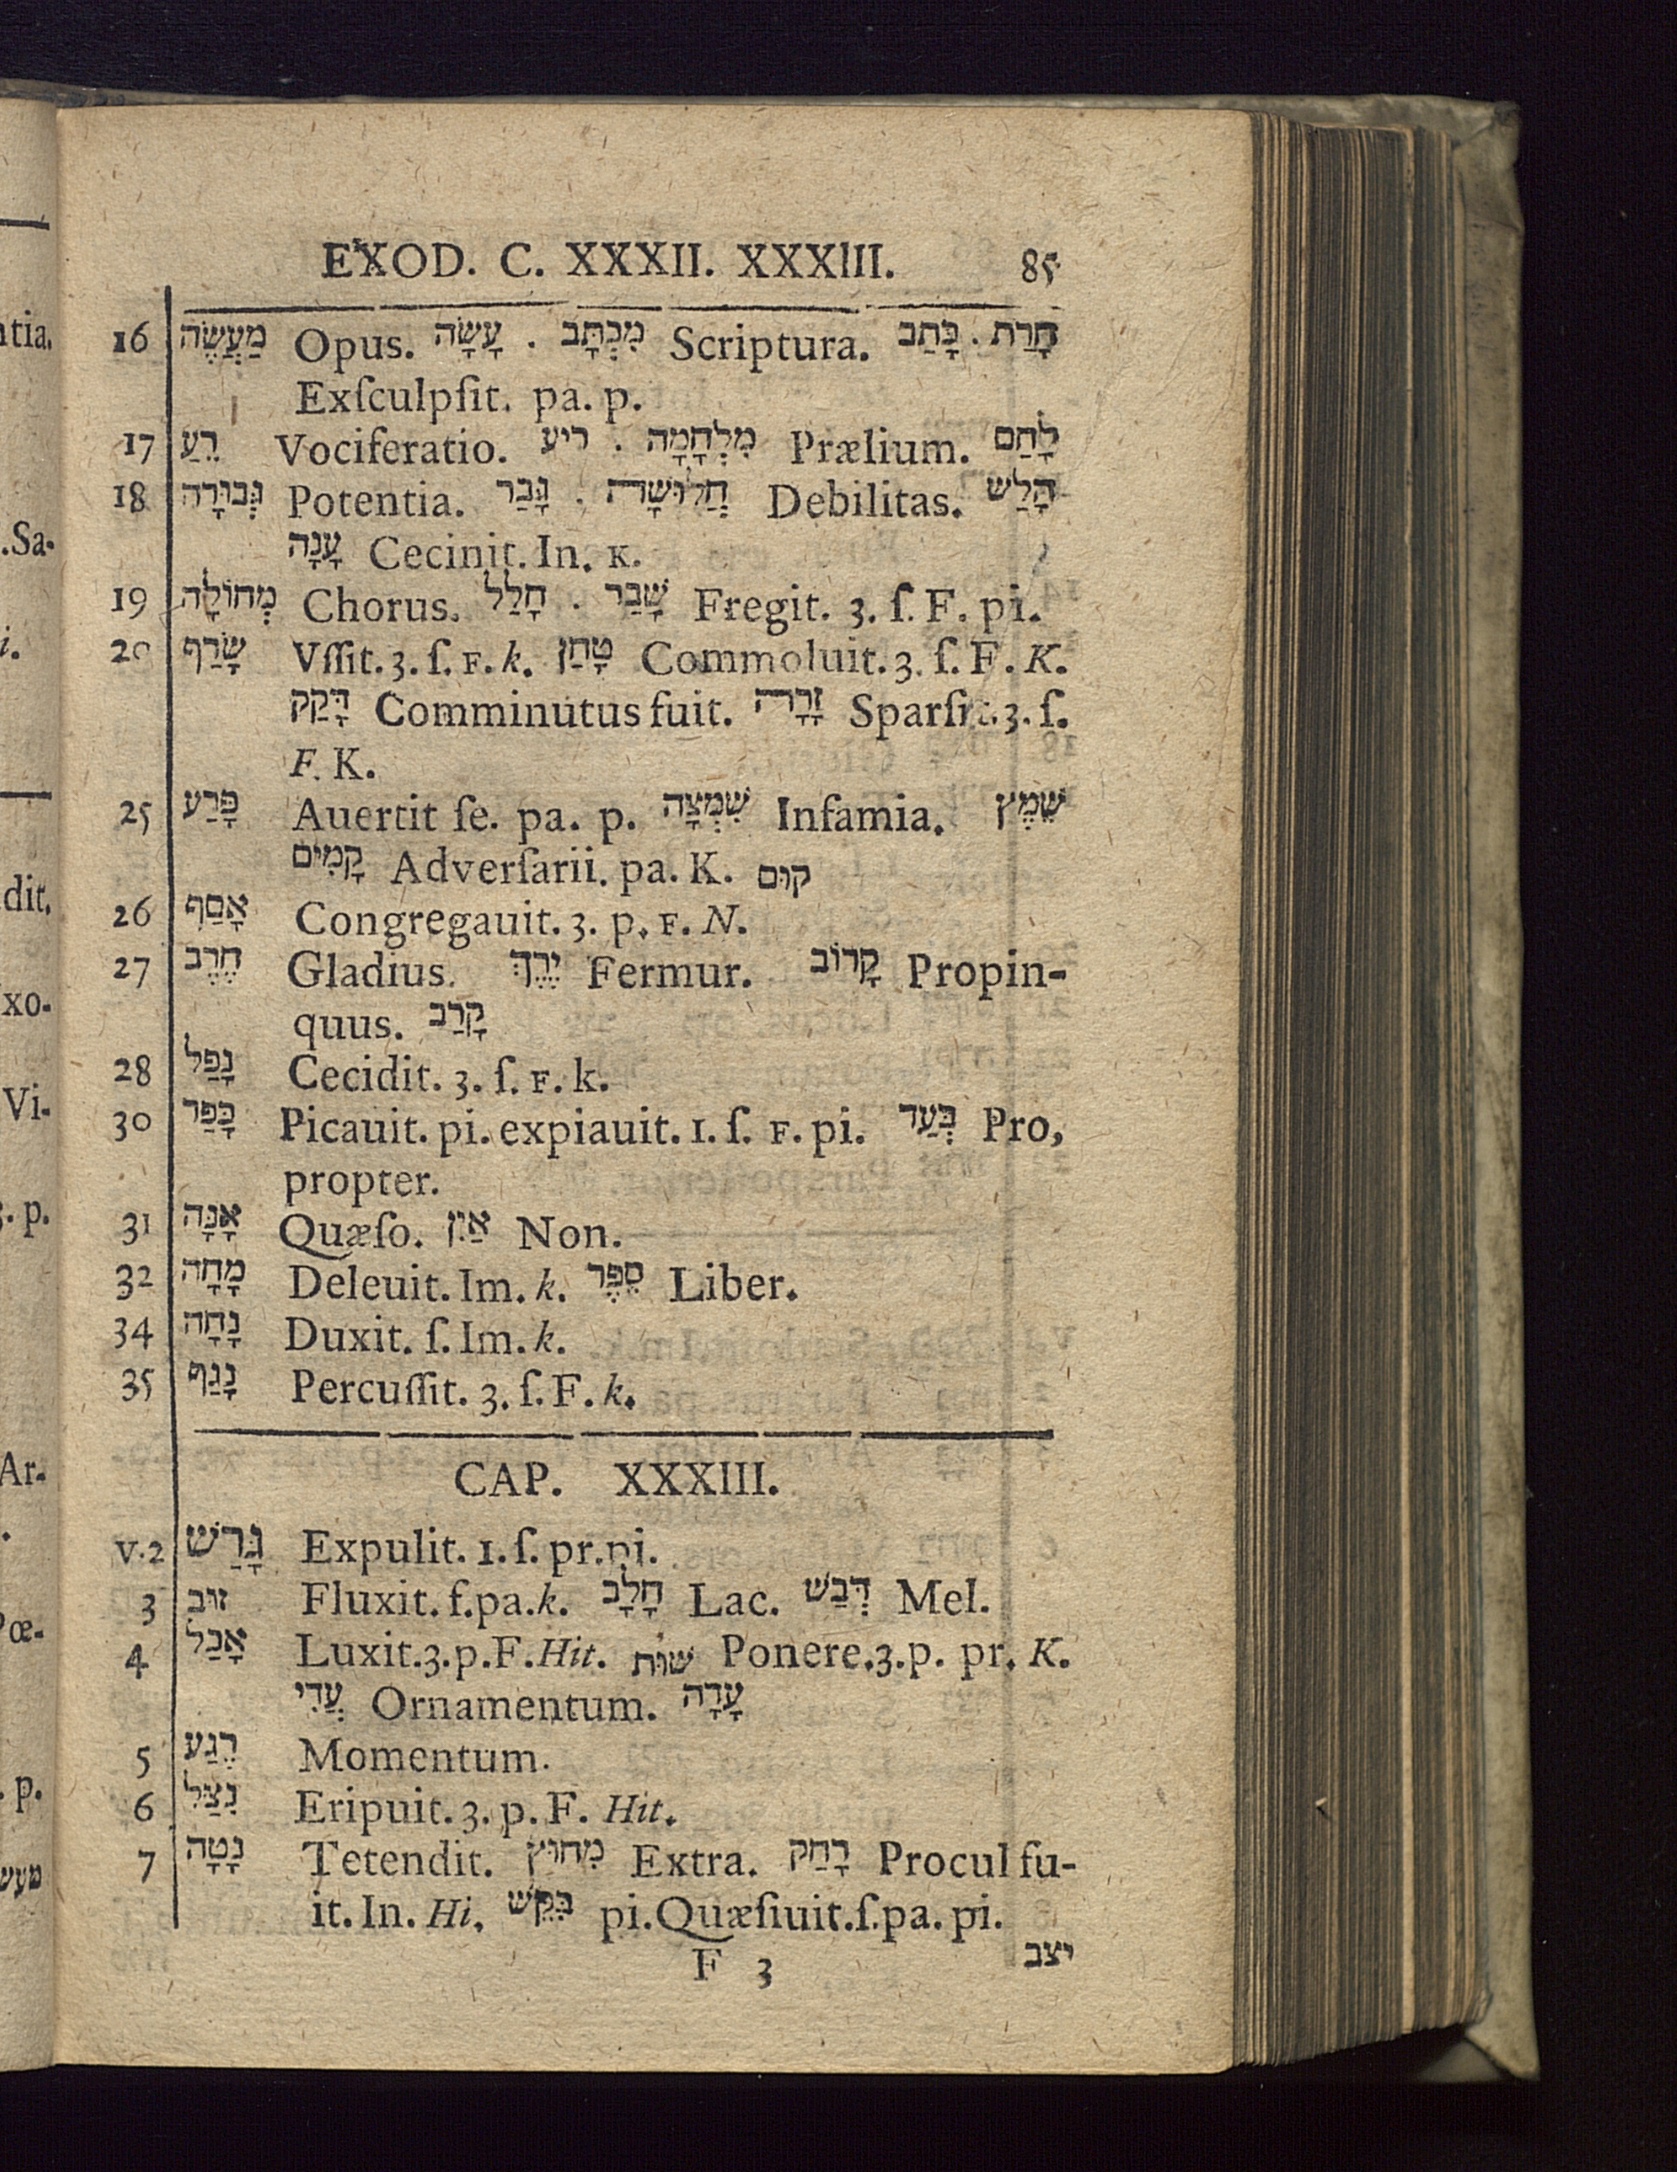 EXOD. C. XXXII. XXXIII. 85
16 מַעֲשֶׂה Opus. עָשָׂה . מִכְתָּב Scriptura. כָּתַב . חָרַת
Exſculpſit. pa. p.
17 רֵעַ Vociferatio. ריע . מִלְחָמָה Prælium. לָחַם
18 גְּבוּרָה Potentia. גָּבַר . חֲלוּשָׁה Debilitas. הָלַשׁ
עָנָה Cecinit. In. K.
19 מְחוֹלָה Chorus. חָלַל . שָׁבַר Fregit. 3. ſ. F. pi.
20 שָׂרַף Vſſit. 3. ſ. F. k. טָחַן Commoluit. 3. ſ. F. K.
דָּקַק Comminutus fuit. זָרָה Sparſit. 3. ſ.
F. K.
25 פָּרַע Auertit ſe. pa. p. שִׁמְצָה Infamia. שֵׁמֶץ
קָמִים Adverſarii. pa. K. קוּם
26 אָסַף Congregauit. 3. p. F. N.
27 חֶרֶב Gladius. יֶרֶךְ Fermur. קָרוֹב Propin-
quus. קָרַב
28 נָפַל Cecidit. 3. ſ. F. k.
30 כָּפַר Picauit. pi. expiauit. 1. ſ. F. pi. בְּעַד Pro,
propter.
31 אָנָּה Quæſo. אַיִן Non.
32 מָחָה Deleuit. Im. k. סֵפֶר Liber.
34 נָחָה Duxit. ſ. Im. k.
35 נָגַף Percuſſit. 3. ſ. F. k.
CAP. XXXIII.
V. 2 גָּרַשׁ Expulit. 1. ſ. pr. pi.
3 זוּב Fluxit. f. pa. k. חָלָב Lac. דְּבַשׁ Mel.
4 אָבַל Luxit. 3. p. F. Hit. שׁוּת Ponere. 3. p. pr. K.
עֲדִי Ornamentum. עָדָה
5 רֶגַע Momentum.
6 נָצַל Eripuit. 3. p. F. Hit.
7 נָטָה Tetendit. מִחוּץ Extra. רָחַק Procul fu-
it. In. Hi. בִּקֵּשׁ pi. Quæſiuit. ſ. pa. pi.
F 3 יצב